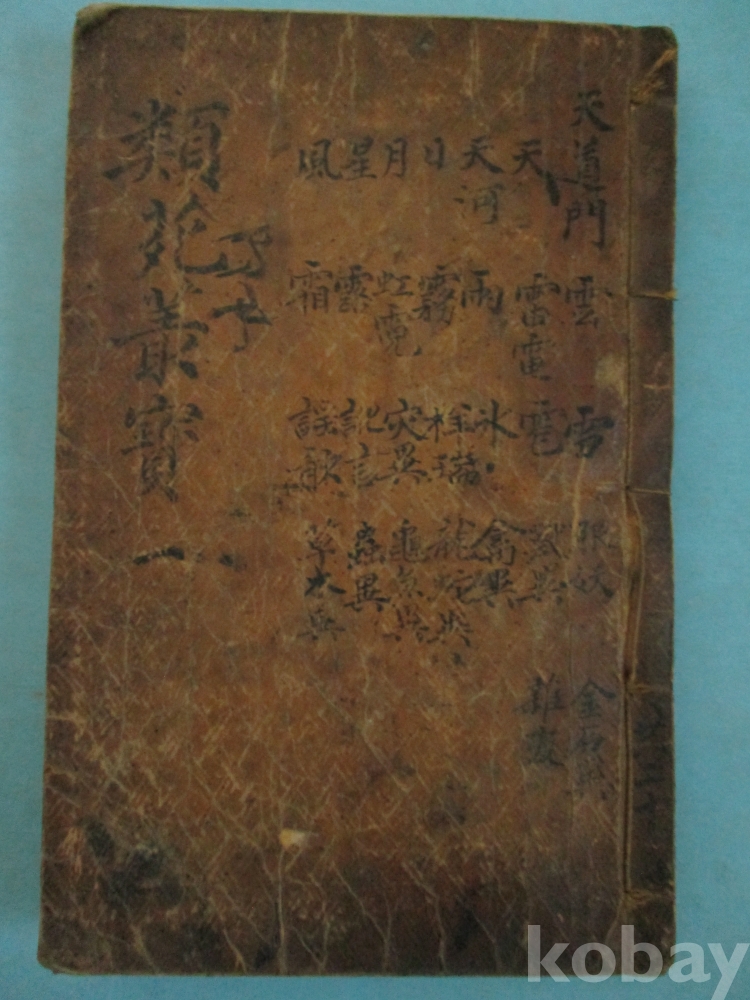 天道門
天
天河
日
月
星
風
雲
雷電
雨
霧
虹霓
露
霜
雪
雹
氷
祥瑞
災異
訛言
謠歌
服妖
獸異
禽異
龍蛇異
龜魚異
蟲異
草木異
金石異
雜變
類苑叢寶 一
kobay